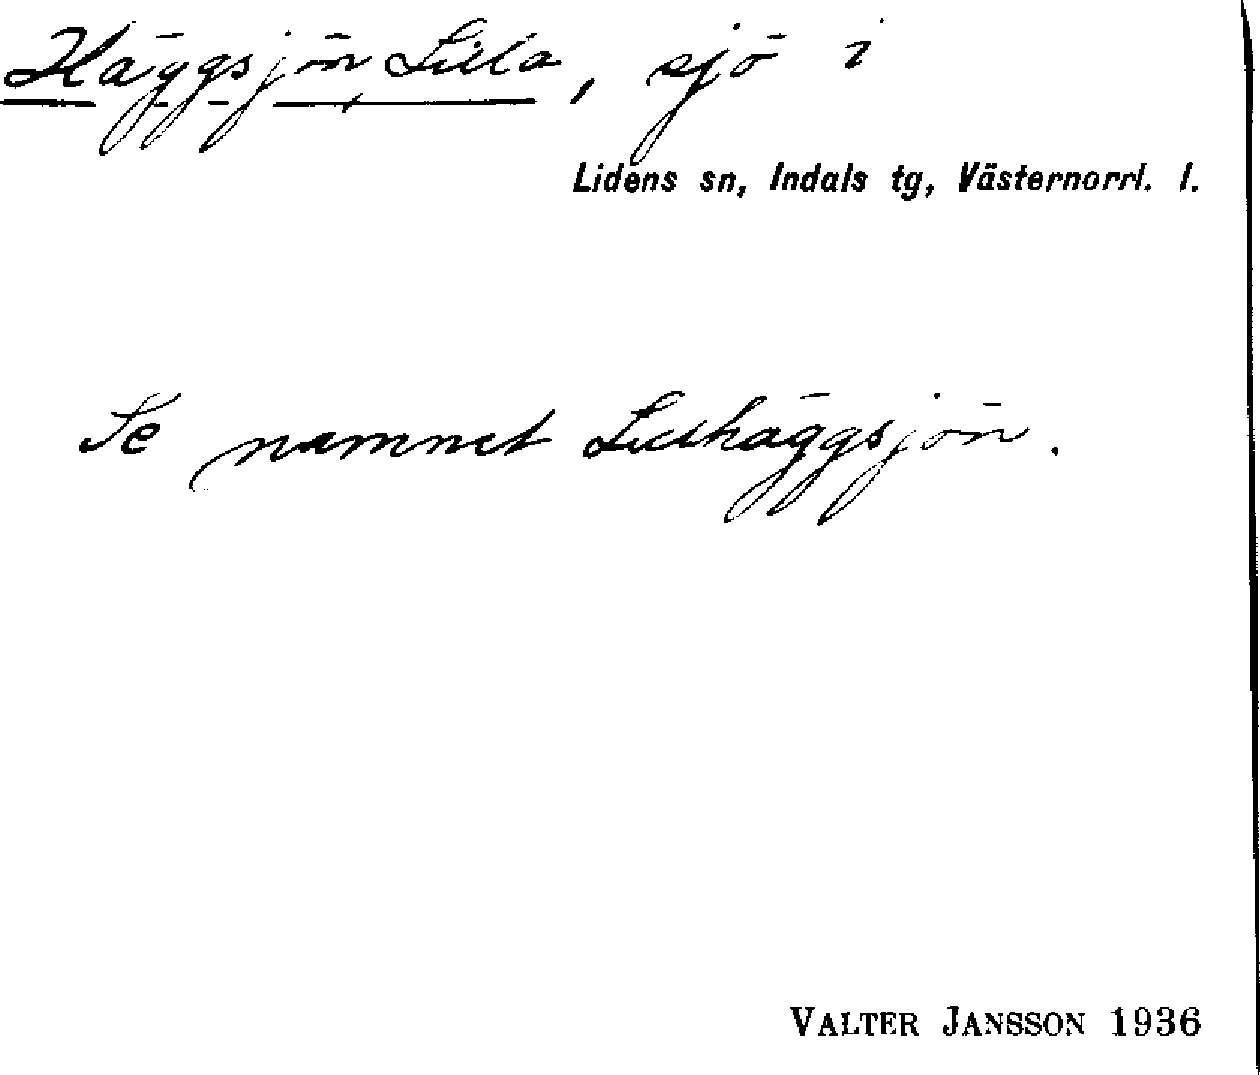 Häggsjön Lilla, sjö i
Lidens sn, Indals tg, Västernorrl. l.
Se namnet Lillhäggsjön.
VALTER JANSSON 1936